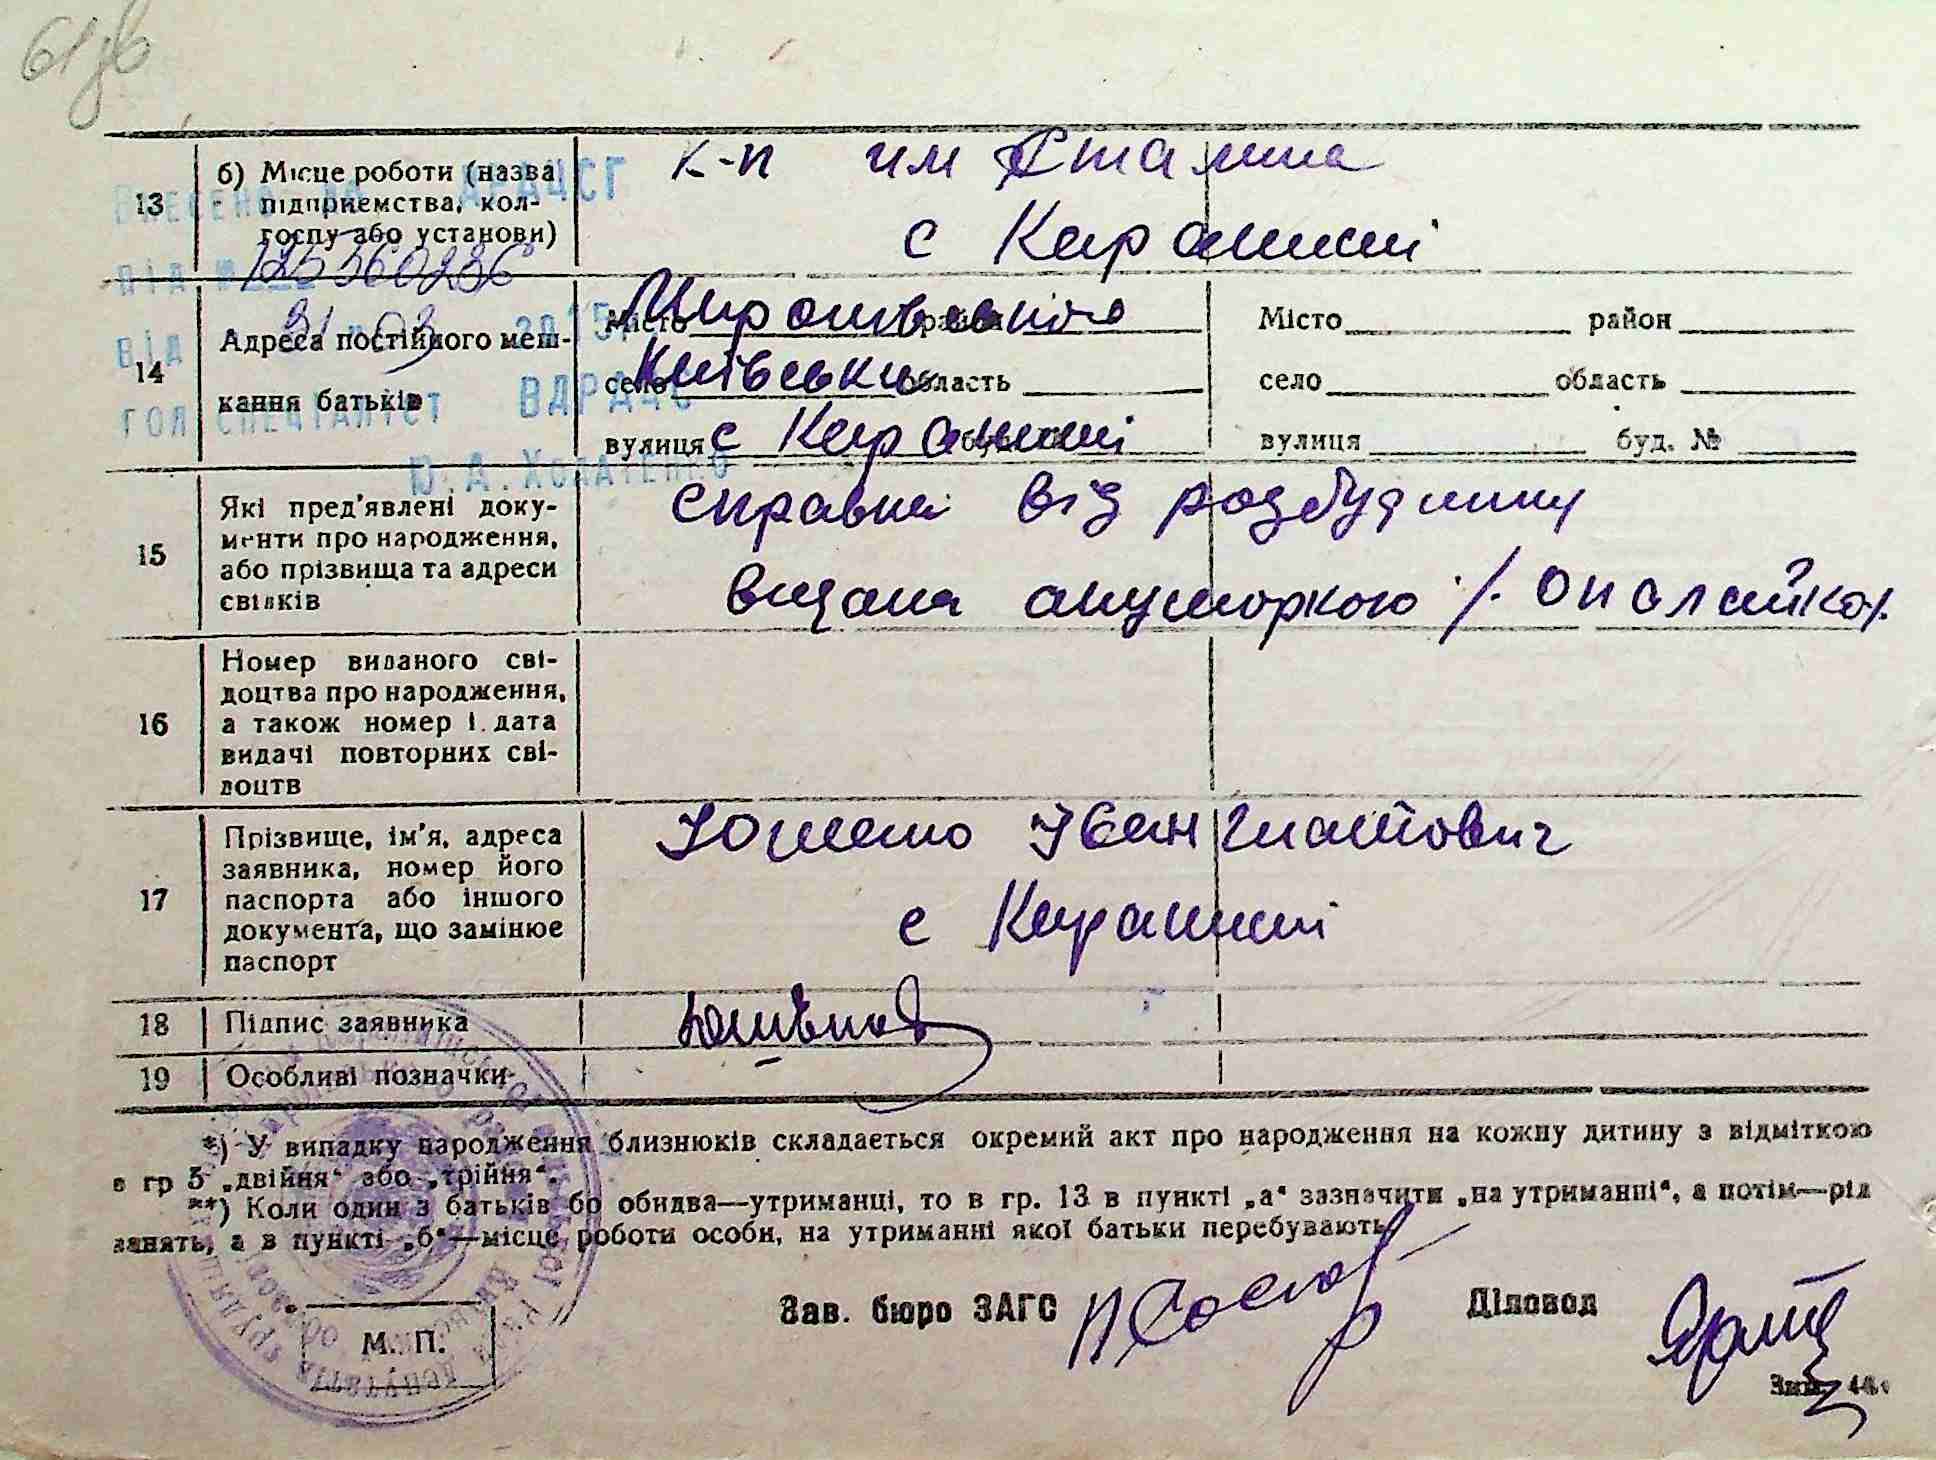 61зв
13
б) Місце роботи (назва
підприємства, кол-
госпу або установи)
к-п им Сталина
с Карапиші
ВНЕСЕНО ДО ДРАЦСГ
ПІД № 125360286
ВІД 31 03 2015
ГОЛ СПЕЦІАЛІСТ ВДРАЦС
14
Адреса постійного меш-
кання батьків
Місто район
село область
вулиця
Миронівського
Київської
с Карапиші
Місто район
село область
вулиця буд. №
15
Які пред'явлені доку-
менти про народження,
або прізвища та адреси
свідків
справка від родбудинку
видана акушоркою /. Опалайко/.
16
Номер виданого сві-
доцтва про народження,
а також номер і дата
видачі повторних сві-
доцтв
17
Прізвище, ім'я, адреса
заявника, номер його
паспорта або іншого
документа, що замінює
паспорт
Іван Гнатович
с Карапиші
18
Підпис заявника
19
Особливі позначки
*) У випадку народження близнюків складається окремий акт про народження на кожну дитину з відміткою
в гр 5 „двійня“ або „трійня“.
**) Коли один з батьків бо обидва—утриманці, то в гр. 13 в пункті „а“ зазначити „на утриманні“, а потім—рід
занять, а в пункті „б“—місце роботи особи, на утриманні якої батьки перебувають
Зав. бюро ЗАГС
Діловод
М. П.